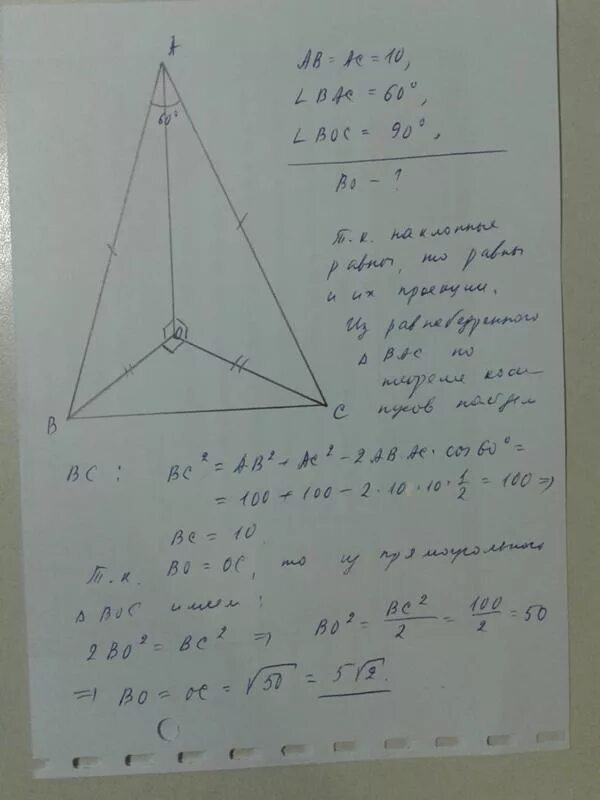 A
60°
B
C
AB = AC = 10,
∠ BAC = 60°,
∠ BOC = 90°,
BO - ?
Т.к. наклонные
равны, то равны
и их проекции.
Из равнобедренного
Δ BAC по
теореме коси-
нусов найдем
BC : BC² = AB² + AC² - 2 AB · AC · cos 60° =
= 100 + 100 - 2 · 10 · 10 · 1/2 = 100 =>
BC = 10.
Т.к. BO = OC, то из прямоугольного
Δ BOC имеем :
2 BO² = BC² => BO² = BC²/2 = 100/2 = 50
=> BO = OC = √50 = 5√2.